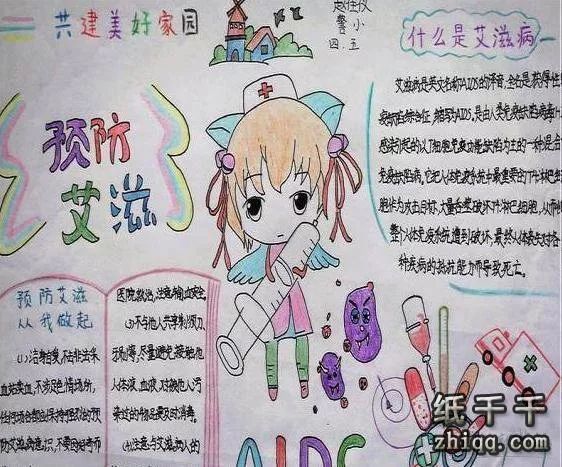 共建美好家园
四.五
什么是艾滋病
预防
艾滋
艾滋病是英文名称AIDS的译音,全位是获得性
疫缺陷综合征,缩写为AIDS,是由人类免疫缺陷病毒
感染引起的以T细胞免疫功能缺陷为主的一种混合
免疫缺陷病。它把人体免疫系统中最重要的T淋巴
胞作为攻击目标,大量吞噬破坏T淋巴细胞,从而
整个人体免疫系统遭到破坏,最终人体丧失对各
种疾病的抵抗能力而导致死亡。
预防艾滋
从我做起
(1)洁身自爱,不去非法采
血站卖血,不涉足色情场所,
防艾滋病意识,不要因
医院就治,注意输血安全。
(3)不与他人共享剃须刀、
牙刷等,尽量避免接触他
人体液、血液,对被他人污
染过的物品要及时消毒。
(4)注意与艾滋病人的
AIDS
纸千千
zhiqq.com